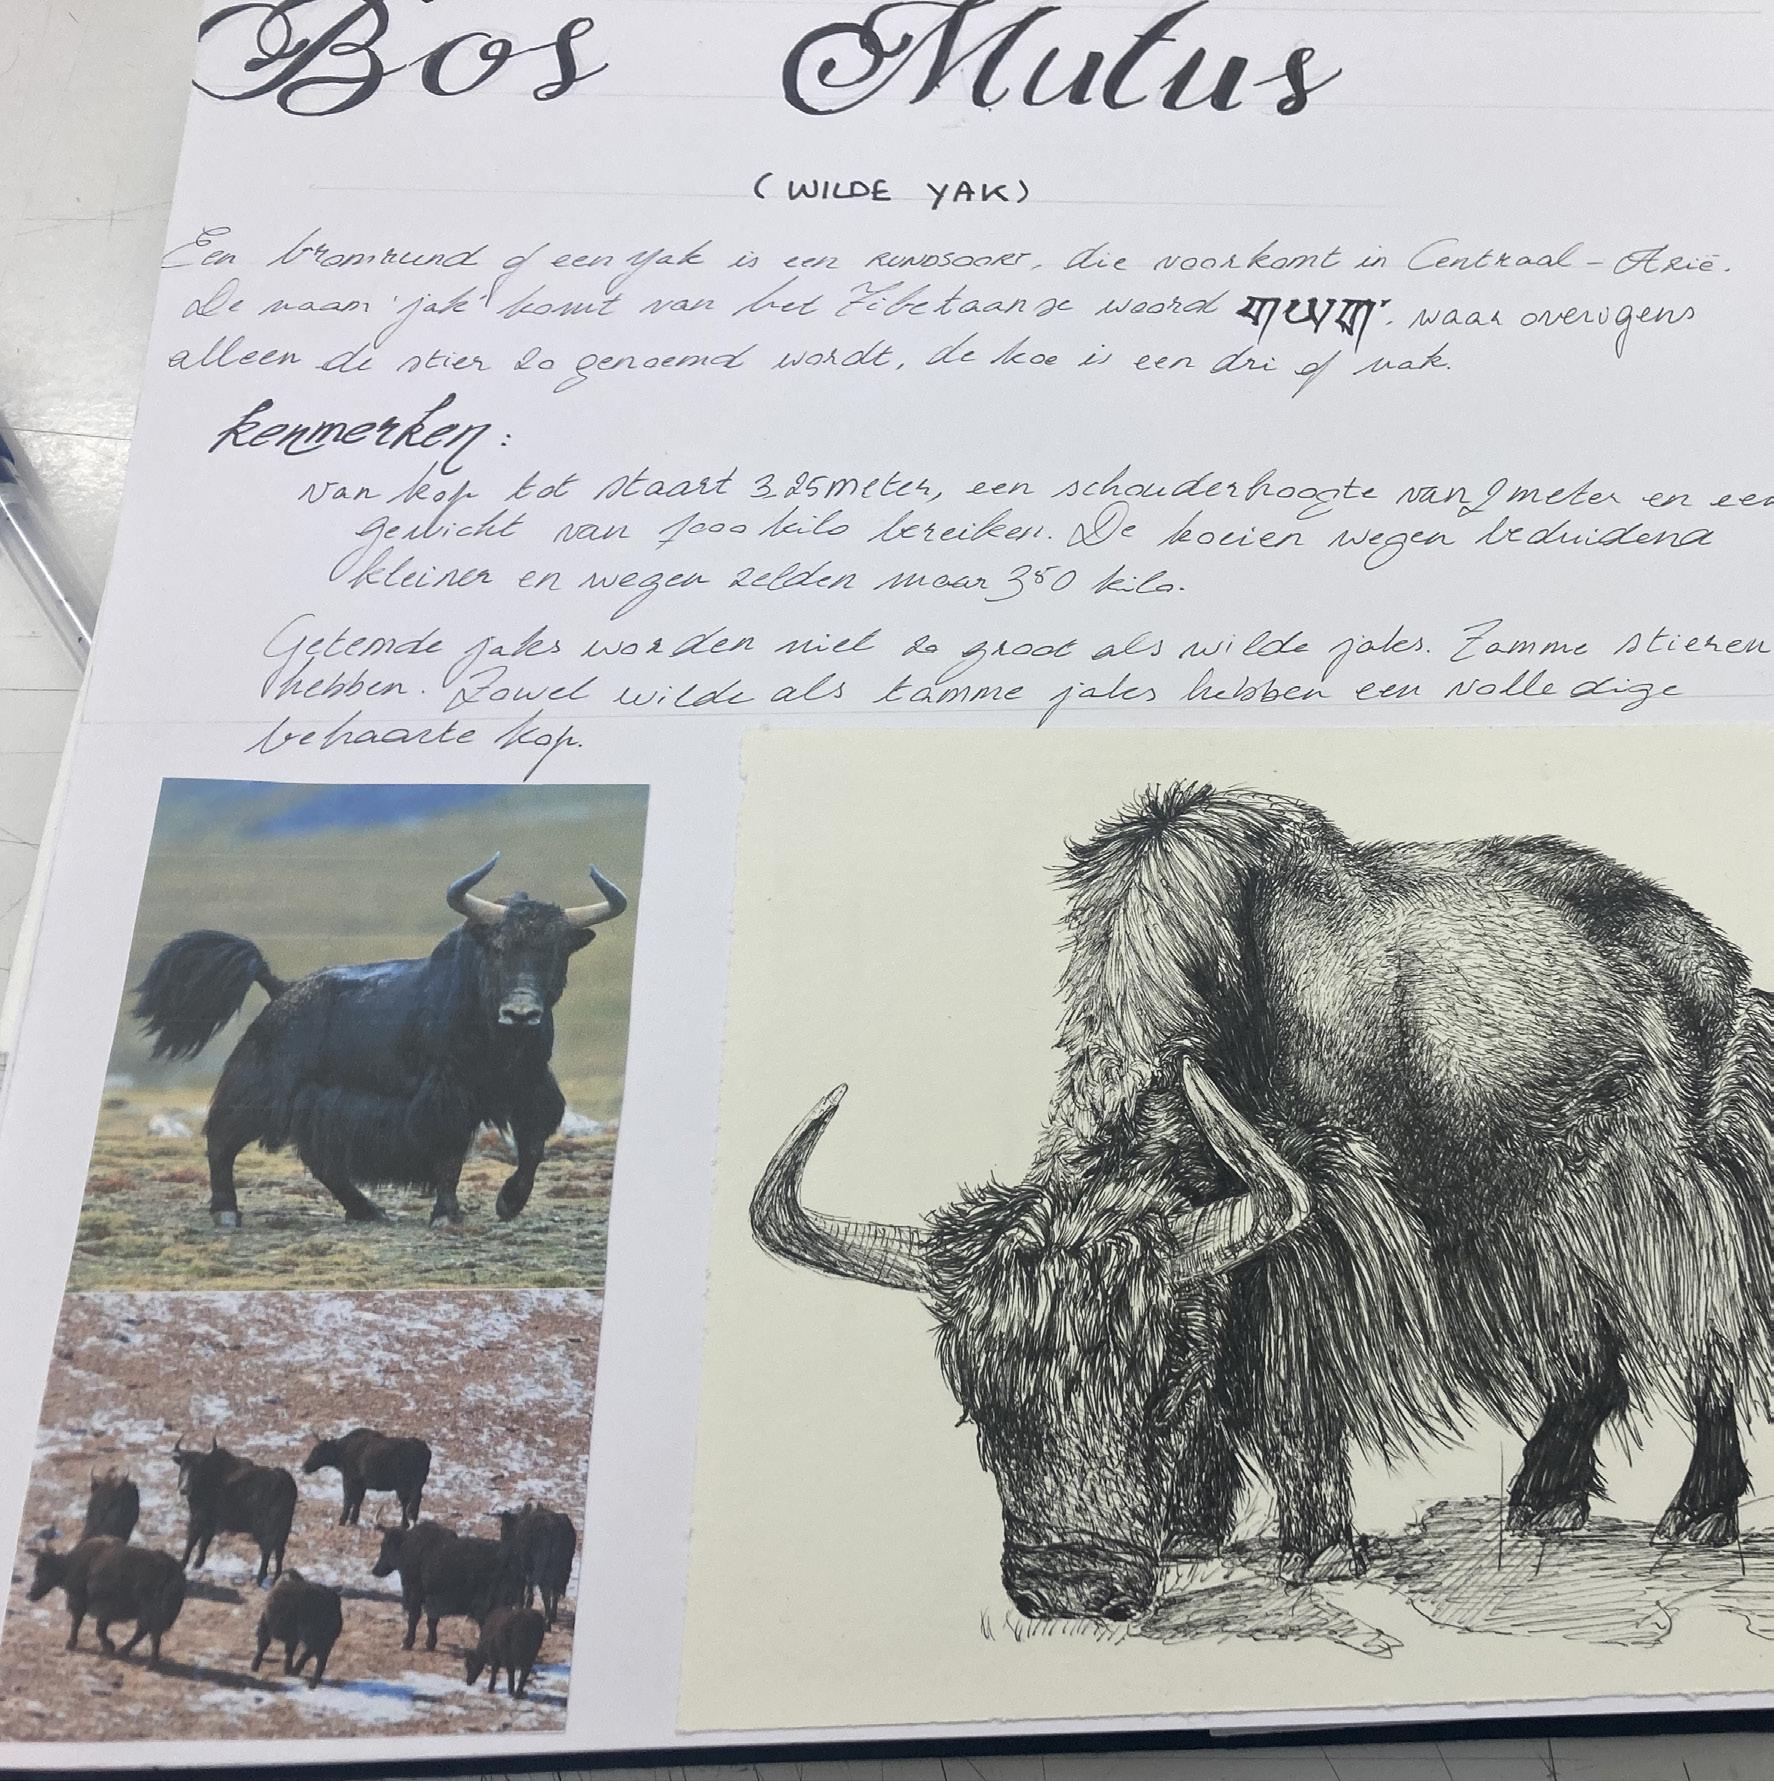 Bos Mutus
(WILDE YAK)
Een bromrund of een yak is een RUNDSOORT, die voorkomt in Centraal-Azië.
De naam 'jak' komt van het Tibetaanse woord གཡག་, waar overigens
alleen de stier zo genoemd wordt, de koe is een dri of nak.
kenmerken:
van kop tot staart 3,25 meter, een schouderhoogte van 2 meter en een
gewicht van 1000 kilo bereiken. De koeien wegen beduidend
kleiner en wegen zelden maar 350 kilo.
Getemde jaks worden niet zo groot als wilde jaks. Tamme stieren
hebben. Zowel wilde als tamme jaks hebben een volledige
behaarte kop.